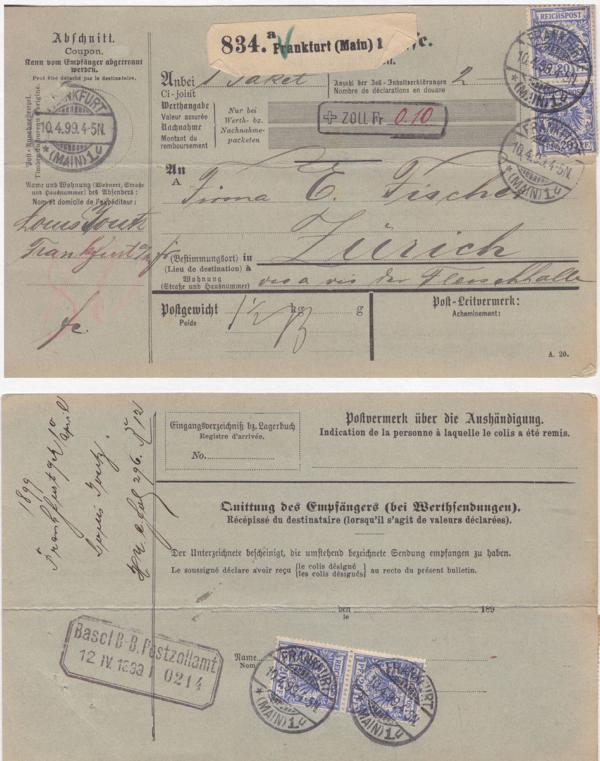 Abschnitt.
Coupon.
Kann vom Empfänger abgetrennt
werden.
Peut être détaché par le destinataire.
834.a Frankfurt (Main) 1
Anbei 1 Paket
Ci-joint
Anzahl der Zoll-Inhaltserklärungen 2
Nombre de déclarations en douane
Werthangabe
Valeur assurée
Nachnahme
Montant du
remboursement
Nur bei
Werth- bz.
Nachnahme-
packeten
ZOLL Fr. 0.10
REICHSPOST
FRANKFURT
10.4.99.4-5N.
*(MAIN)1.u
FRANKFURT
10.4.99.4-5N.
*(MAIN)1.u
FRANKFURT
10.4.99.4-5N.
*(MAIN)1.u
Post-Ausgabestempel.
Timbre du bureau d'origine.
An
A
Firma E. Fischer
Name und Wohnung (Wohnort, Straße
und Hausnummer) des Absenders:
Nom et domicile de l'expéditeur:
Louis
Frankfurt a/m
(Bestimmungsort) in
(Lieu de destination) à
Zürich
Wohnung
(Straße und Hausnummer)
vis a vis der Fleischhalle
Postgewicht
Poids
1½
kg
g
Post-Leitvermerk:
Acheminement:
fc.
A. 20.
Eingangsverzeichniß bz. Lagerbuch
Registre d'arrivée.
No.
Postvermerk über die Aushändigung.
Indication de la personne à laquelle le colis a été remis.
1899
Frankfurt 10 April
Louis
296.
Quittung des Empfängers (bei Werthsendungen).
Récépissé du destinataire (lorsqu'il s'agit de valeurs déclarées).
Der Unterzeichnete bescheinigt, die umstehend bezeichnete Sendung empfangen zu haben.
Le soussigné déclare avoir reçu (le colis désigné / les colis désignés) au recto du présent bulletin.
den
le
189
Basel B-B. Postzollamt
12 IV. 1899 I 0214
Name
Nom
FRANKFURT
10.4.99.4-5N.
*(MAIN)1.u
FRANKFURT
10.4.99.4-5N.
*(MAIN)1.u